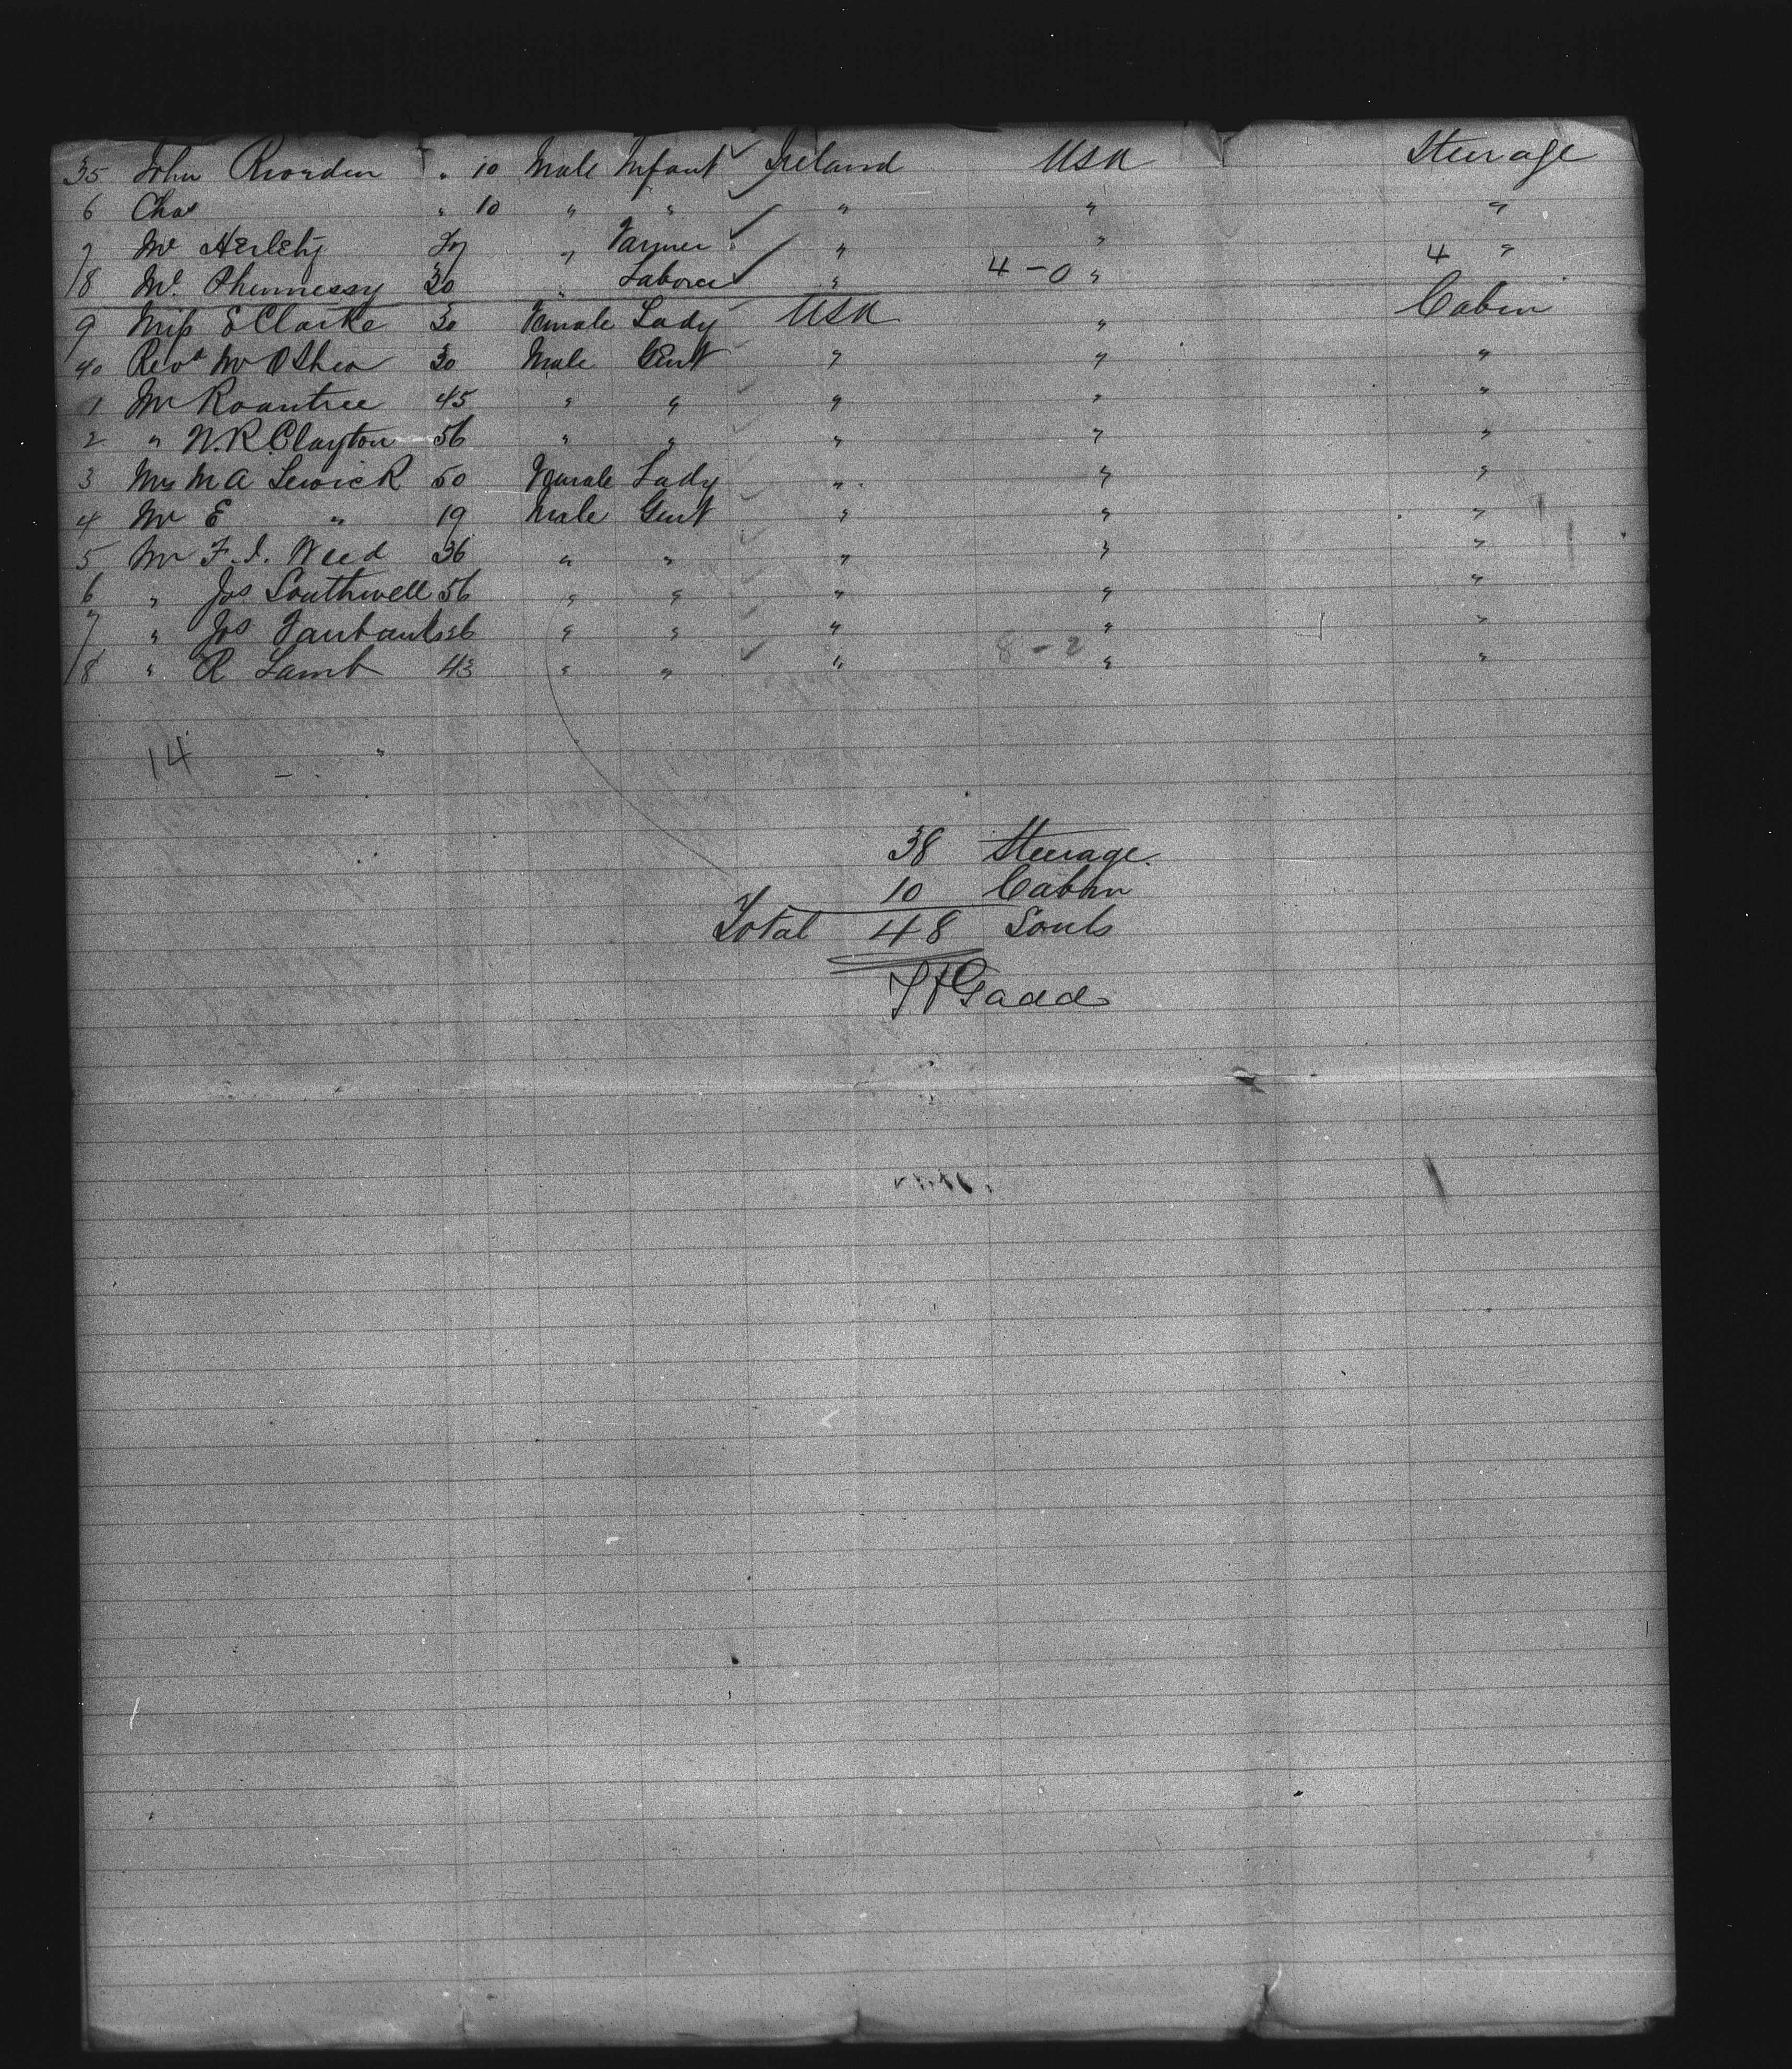 35 John Riorden " 10 Male Infant Ireland USA Steerage
6 Chas " 10 " " " " "
7 Mr Herlehy " Farmer " " 4 "
/8 Mr. Ohennessy 30 " Laborer " 4-0 " "
9 Miss E Clarke 30 Female Lady USA " Cabin
40 Revd Mr O Shea 30 Male Gent " " "
1 Mr Roantree 45 " " " " "
2 " W.R. Clayton 56 " " " " "
3 Mrs M A Sewick 50 Female Lady " " "
4 Mr E " 19 Male Gent " " "
5 Mr F. I. Weed 36 " " " " "
6 " Jos Southwell 56 " " " " "
7 " Jos " " " " "
/8 " R Lamb 43 " " " 8-2 " "
14 "
38 Steerage.
10 Cabin
Total 48 Souls
Gadd